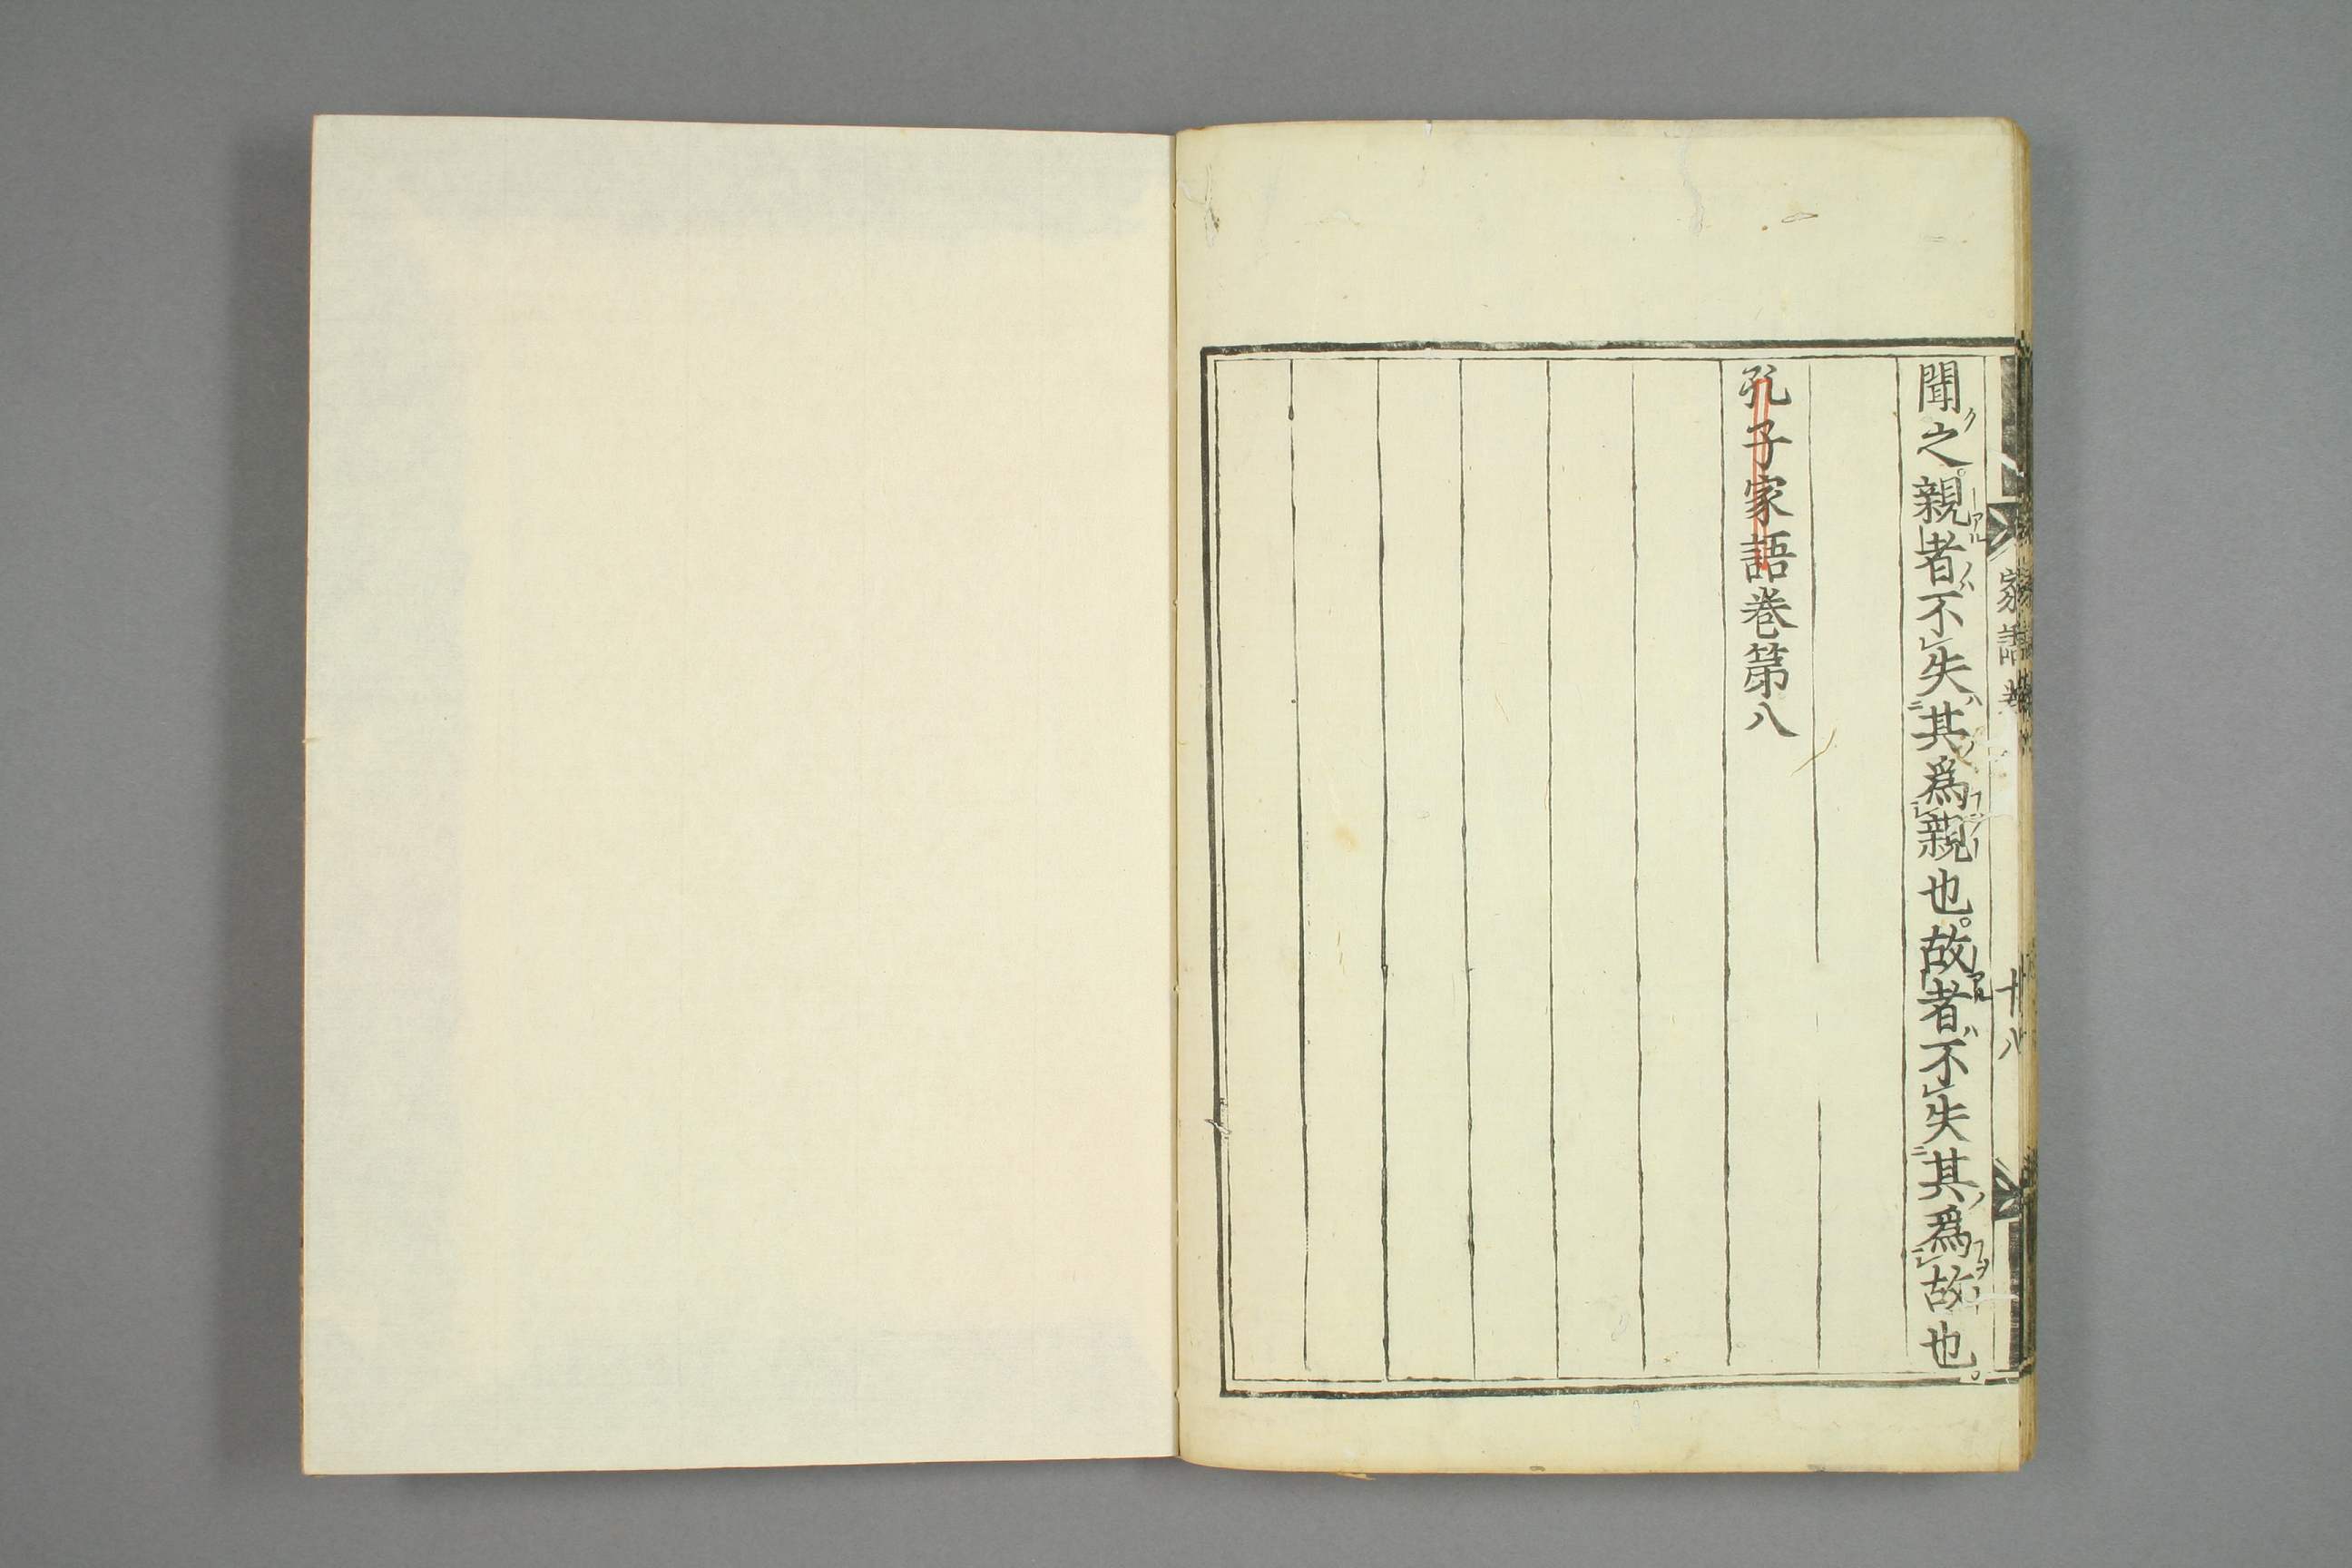 聞之。親者不失其爲親也。故者不失其爲故也。
孔子家語巻第八
家語
十八